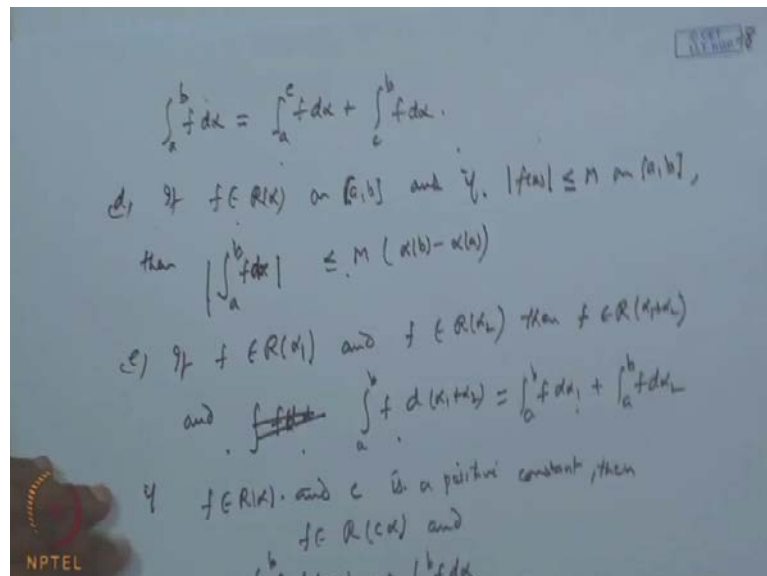 ∫_a^b f dα = ∫_a^c f dα + ∫_c^b f dα.
d, If f ∈ R(α) on [a,b] and if |f(x)| ≤ M on [a,b],
then |∫_a^b f dα| ≤ M (α(b) - α(a))
e) If f ∈ R(α₁) and f ∈ R(α₂) then f ∈ R(α₁+α₂)
and ∫_a^b f d(α₁+α₂) = ∫_a^b f dα₁ + ∫_a^b f dα₂
if f ∈ R(α). and c is a positive constant, then
f ∈ R(cα) and
∫_a^b f dα
NPTEL